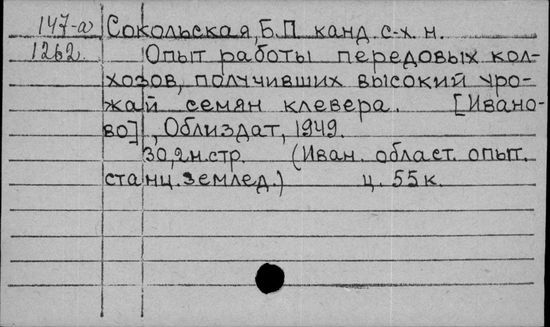 147-а Сокольская, Б.П. канд. с-х. н.
1262. Опыт работы передовых кол-
хозов, получивших высокий уро-
жай семян клевера. [Ивано-
во], Облиздат, 1949.
30,2н.стр. (Иван. област. опыт.
станц. землед.) ц. 55к.